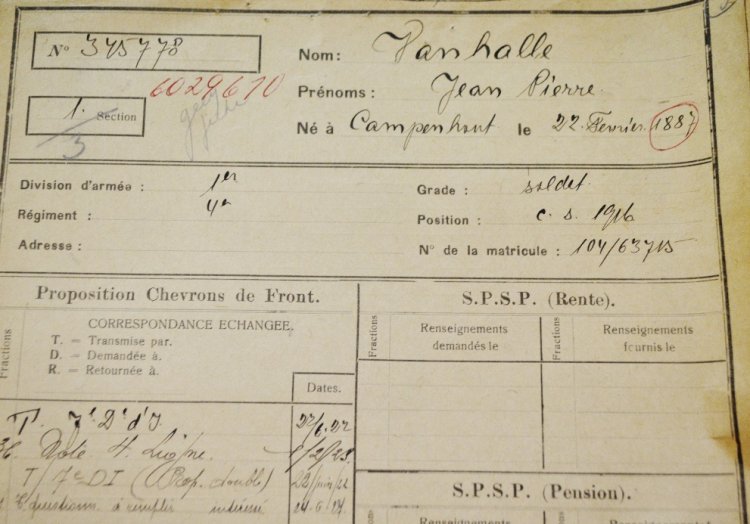 N° 345778
6029610
1. Section
3
Nom: Vanhalle
Prénoms: Jean Pierre
Né à Campenhout le 22 Fevrier 1887
Division d'armée : 1er
Régiment : 4e
Adresse :
Grade : soldat
Position : c. s. 1916
N° de la matricule : 104/63715
Proposition Chevrons de Front.
Fractions
CORRESPONDANCE ECHANGEE.
T. = Transmise par.
D. = Demandée à.
R. = Retournée à.
Dates.
T. 7e D. d'I. 27/6.22
4. Ligne.
T/7e DI (Prop. double)
questions à remplir intéressé
S.P.S.P. (Rente).
Fractions
Renseignements
demandés le
Fractions
Renseignements
fournis le
S.P.S.P. (Pension).
Renseignements
Renseignements